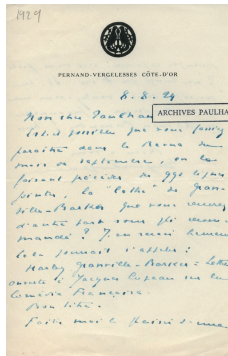 1929
PERNAND-VERGELESSES CÔTE-D'OR
ARCHIVES PAULHA
Mon cher Paulhan
Est-il possible que vous fassiez
paraître dans la Revue du
mois de septembre, en la
faisant précéder de qqes lignes
la "lettre" de Gran-
ville-Barker que vous
d'autre part vous
?
Cela pourrait s'appeler :
Harley Granville-Barker : Lettre
ouverte à Jacques Copeau sur la
Comédie Française.
Faites moi le plaisir d'une